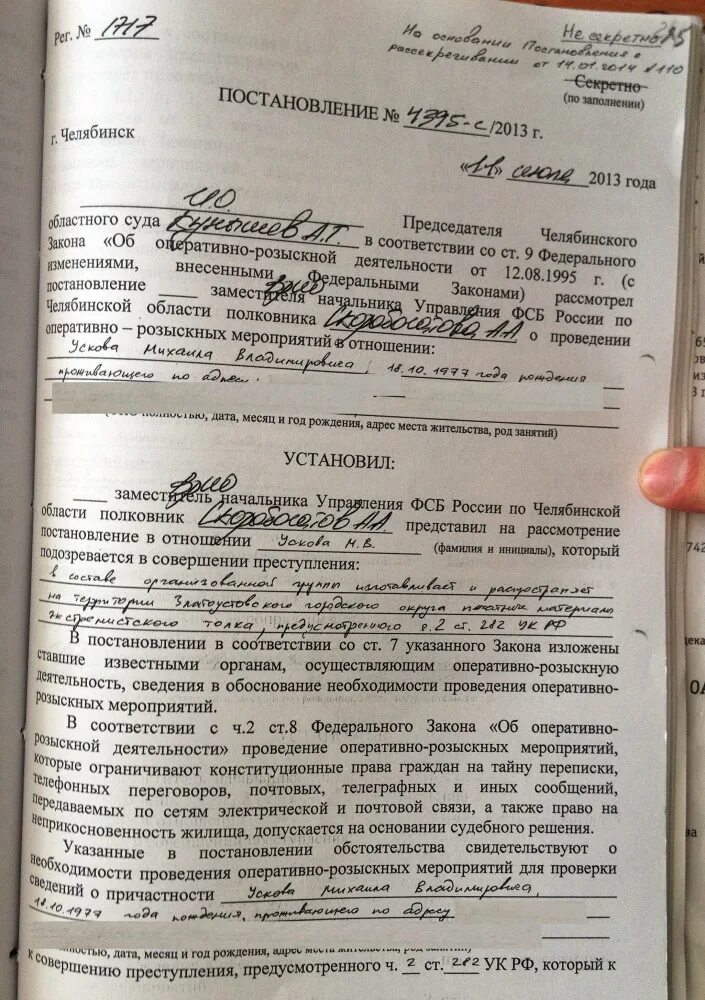 Рег. № 1717
Не секретно
На основании Постановления о
рассекречивании от 14.01.2014 №110
Секретно
(по заполнении)
ПОСТАНОВЛЕНИЕ № 4395-с/2013 г.
г. Челябинск
«11» июля 2013 года
ИО Председателя Челябинского
областного суда Кунышев А.Г. в соответствии со ст. 9 Федерального
Закона «Об оперативно-розыскной деятельности от 12.08.1995 г. (с
изменениями, внесенными Федеральными Законами) рассмотрел
постановление врио заместителя начальника Управления ФСБ России по
Челябинской области полковника Скоробогатова А.А. о проведении
оперативно – розыскных мероприятий в отношении:
Ускова Михаила Владимировича, 18.10.1977 года рождения
проживающего по адресу:
полностью, дата, месяц и год рождения, адрес места жительства, род занятий)
УСТАНОВИЛ:
врио заместитель начальника Управления ФСБ России по Челябинской
области полковник Скоробогатов А.А. представил на рассмотрение
постановление в отношении Ускова М.В. (фамилия и инициалы), который
подозревается в совершении преступления:
в составе организованной группы изготавливает и распространяет
на территории Златоустовского городского округа печатные материалы
экстремистского толка, предусмотренного ч.2 ст. 282 УК РФ
В постановлении в соответствии со ст. 7 указанного Закона изложены
ставшие известными органам, осуществляющим оперативно-розыскную
деятельность, сведения в обоснование необходимости проведения оперативно-
розыскных мероприятий.
В соответствии с ч.2 ст.8 Федерального Закона «Об оперативно-
розыскной деятельности» проведение оперативно-розыскных мероприятий,
которые ограничивают конституционные права граждан на тайну переписки,
телефонных переговоров, почтовых, телеграфных и иных сообщений,
передаваемых по сетям электрической и почтовой связи, а также право на
неприкосновенность жилища, допускается на основании судебного решения.
Указанные в постановлении обстоятельства свидетельствуют о
необходимости проведения оперативно-розыскных мероприятий для проверки
сведений о причастности Ускова Михаила Владимировича,
18.10.1977 года рождения, проживающего по адресу
полностью, дата, месяц и год рождения, адрес места жительства, род занятий)
к совершению преступления, предусмотренного ч. 2 ст. 282 УК РФ, который к